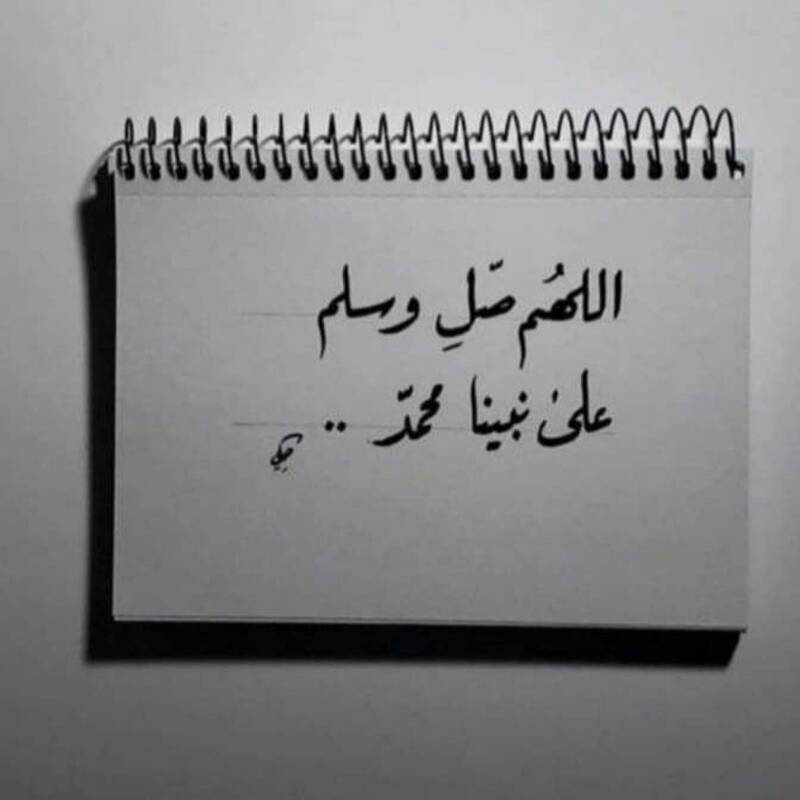 اللهُم صّلِ وسلم
علىٰ نبينا محمدّ ..